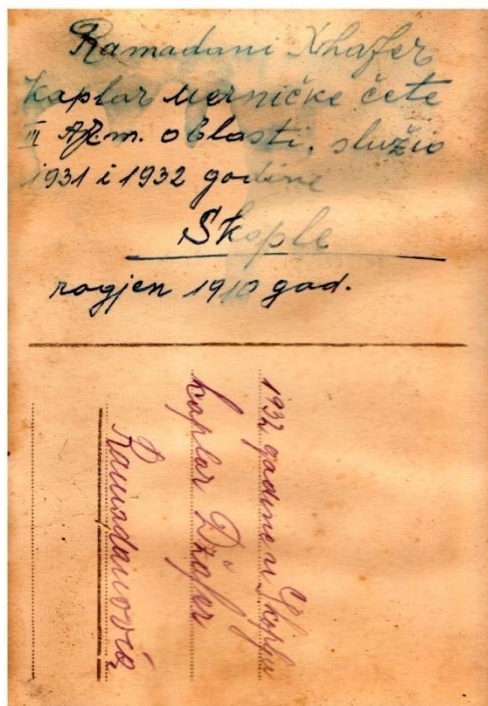 Ramadani Xhafer
Kaplar Merničke čete
III Arm. oblasti, služio
1931 i 1932 godine
Skople
rogjen 1910 god.
1932 godine u Skoplju
kaplar Džafer
Ramadanović